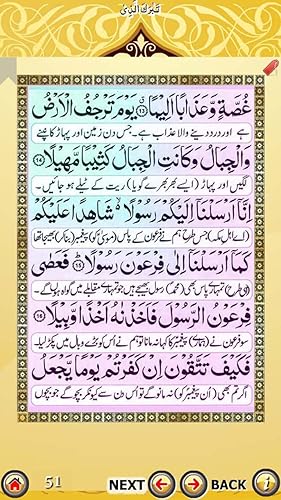 تَبٰرَكَ الَّذِیْ
غُصَّةٍ وَّعَذَابًا اَلِیْمًا ۝۱۳ یَوْمَ تَرْجُفُ الْاَرْضُ
ہے اور درد دینے والا عذاب ہے۔ جس دن زمین اور پہاڑ کانپنے
وَالْجِبَالُ وَكَانَتِ الْجِبَالُ كَثِیْبًا مَّهِیْلًا ۝۱۴
لگیں اور پہاڑ (ایسے بھر بھرے گویا) ریت کے ٹیلے ہو جائیں۔
اِنَّاۤ اَرْسَلْنَاۤ اِلَیْكُمْ رَسُوْلًا ۙ شَاهِدًا عَلَیْكُمْ
(اے اہل مکہ) جس طرح ہم نے فرعون کے پاس (موسیٰ کو) پیغمبر (بنا کر) بھیجا تھا
كَمَاۤ اَرْسَلْنَاۤ اِلٰی فِرْعَوْنَ رَسُوْلًا ۝۱۵ فَعَصٰی
(اسی طرح) تمہارے پاس بھی (محمدؐ) رسول بھیجے ہیں جو تمہارے مقابلے میں گواہ ہوں گے
فِرْعَوْنُ الرَّسُوْلَ فَاَخَذْنٰهُ اَخْذًا وَّبِیْلًا ۝۱۶
سو فرعون نے (ہمارے) پیغمبر کا کہا نہ مانا تو ہم نے اس کو بڑے وبال میں پکڑ لیا۔
فَكَیْفَ تَتَّقُوْنَ اِنْ كَفَرْتُمْ یَوْمًا یَّجْعَلُ
اگر تم بھی (ان پیغمبر کو) نہ مانو گے تو اس دن سے کیونکر بچو گے جو بچوں
51 NEXT BACK i